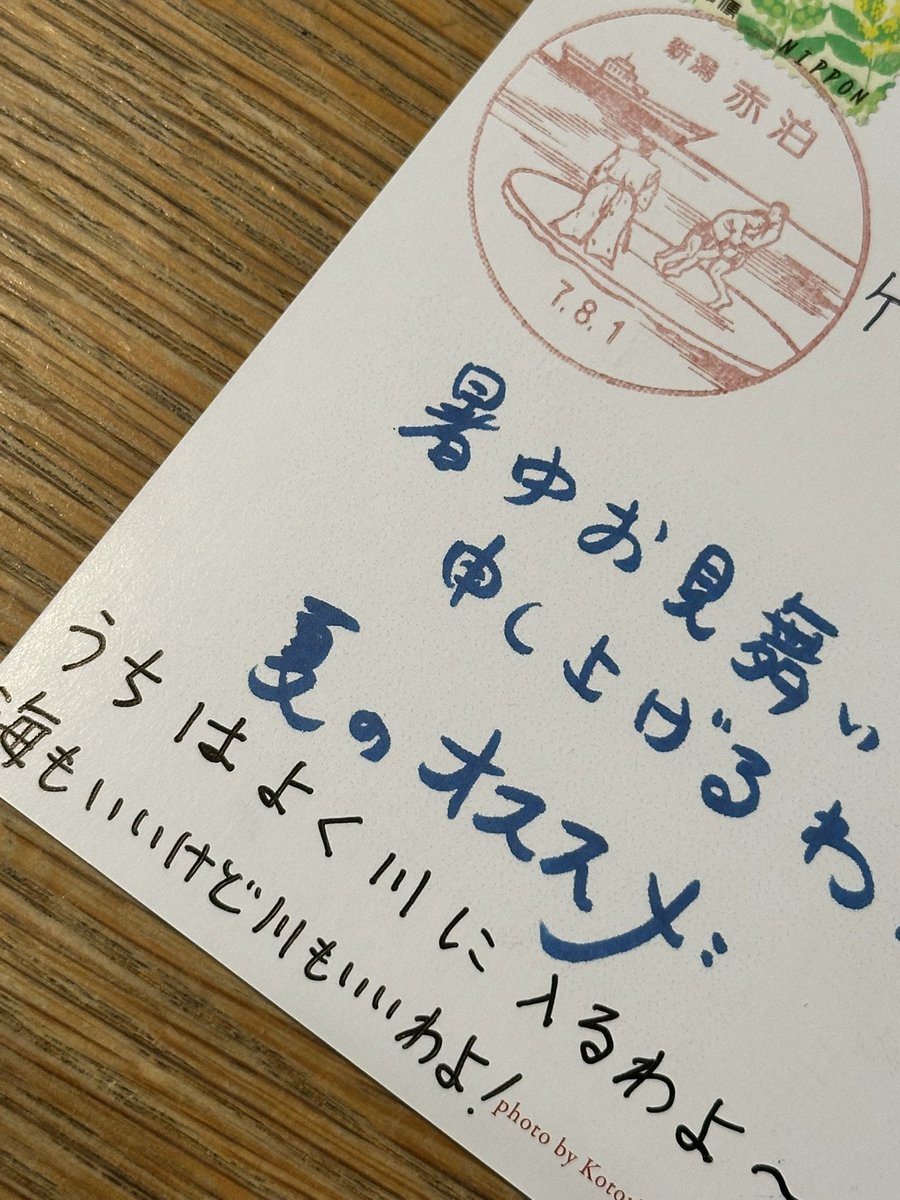 NIPPON
新潟 赤泊
7.8.1
ケ
暑中お見舞い
申し上げるわ
夏のオススメ
うちはよく川に入るわよ〜
海もいいけど川もいいわよ！
photo by